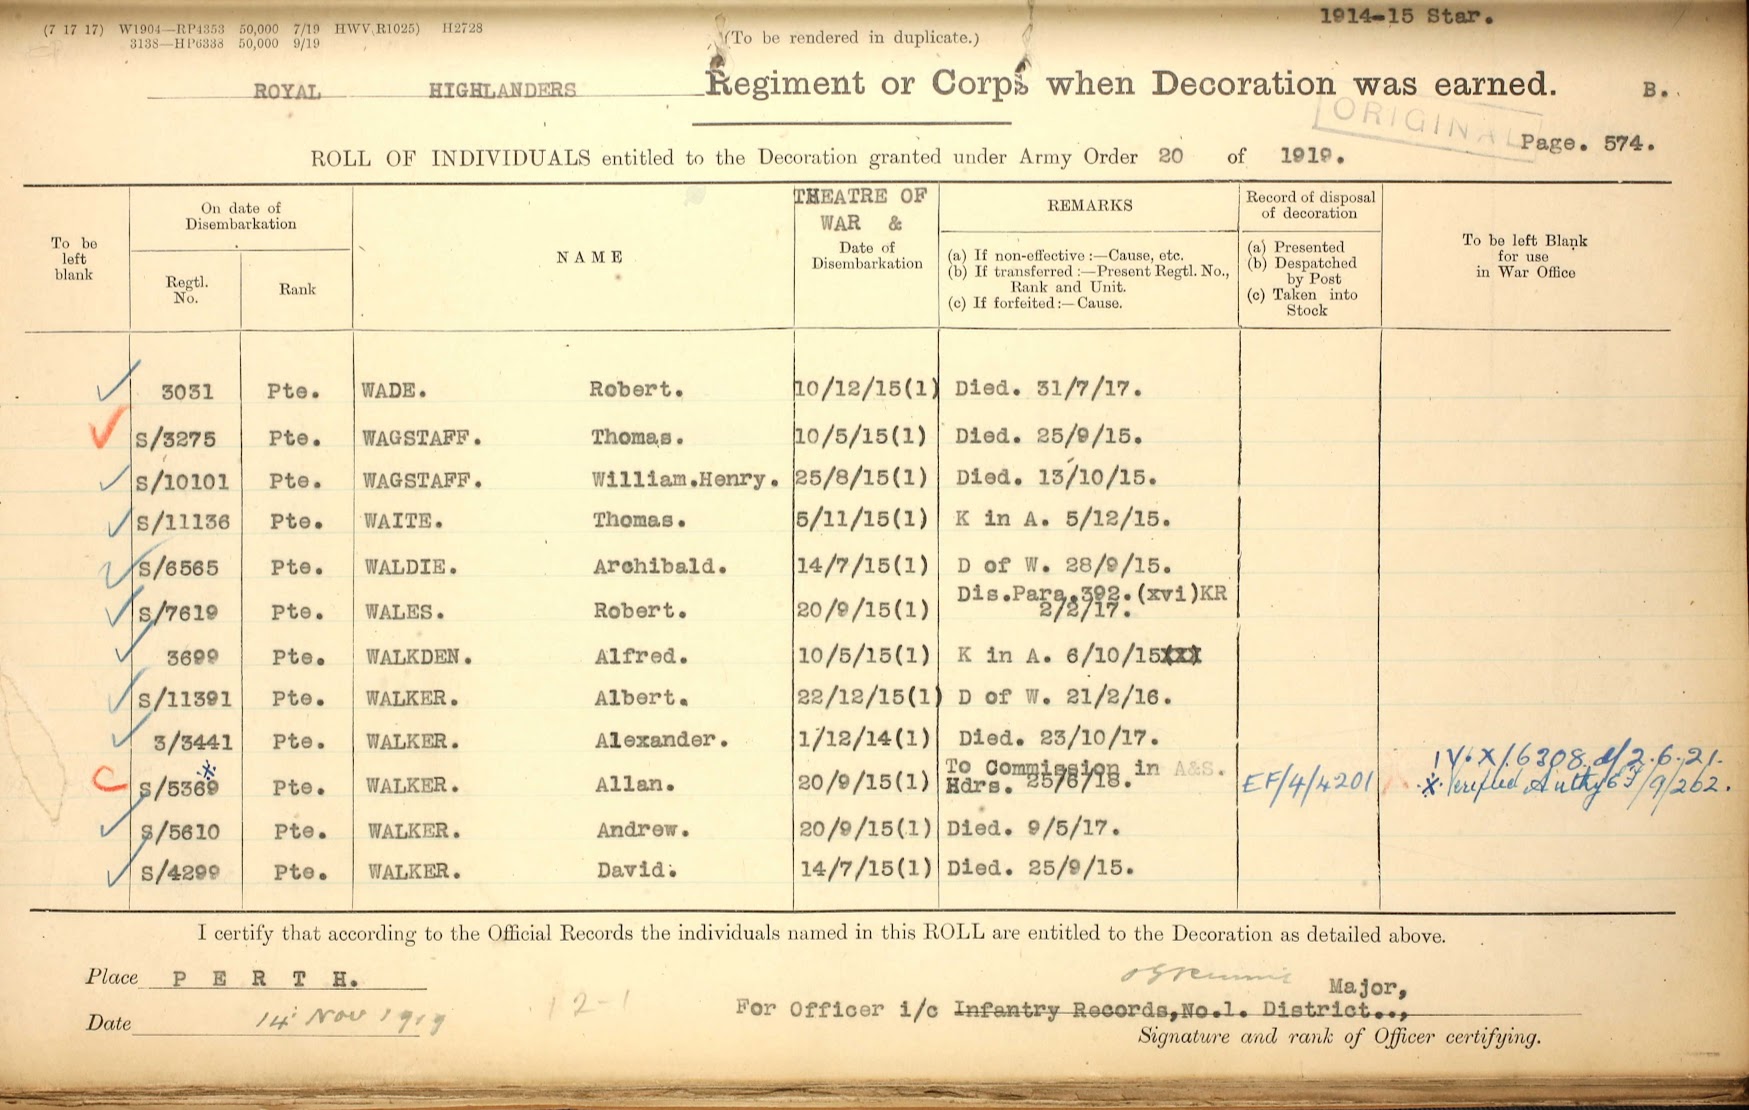 1914-15 Star.
(7 17 17) W1904—RP4353 50,000 7/19 HWV(R1025) H2728
3138—HP6338 50,000 9/19
(To be rendered in duplicate.)
ROYAL HIGHLANDERS Regiment or Corps when Decoration was earned. B.
ORIGINAL
Page. 574.
ROLL OF INDIVIDUALS entitled to the Decoration granted under Army Order 20 of 1919.
To be left blank
On date of Disembarkation
Regtl. No.
Rank
NAME
THEATRE OF WAR &
Date of Disembarkation
REMARKS
(a) If non-effective :—Cause, etc.
(b) If transferred :—Present Regtl. No., Rank and Unit.
(c) If forfeited :—Cause.
Record of disposal of decoration
(a) Presented
(b) Despatched by Post
(c) Taken into Stock
To be left Blank for use in War Office
3031 Pte. WADE. Robert. 10/12/15(1) Died. 31/7/17.
S/3275 Pte. WAGSTAFF. Thomas. 10/5/15(1) Died. 25/9/15.
S/10101 Pte. WAGSTAFF. William.Henry. 25/8/15(1) Died. 13/10/15.
S/11136 Pte. WAITE. Thomas. 5/11/15(1) K in A. 5/12/15.
S/6565 Pte. WALDIE. Archibald. 14/7/15(1) D of W. 28/9/15.
S/7619 Pte. WALES. Robert. 20/9/15(1) Dis.Para.392.(xvi)KR 2/2/17.
3699 Pte. WALKDEN. Alfred. 10/5/15(1) K in A. 6/10/15
S/11391 Pte. WALKER. Albert. 22/12/15(1) D of W. 21/2/16.
3/3441 Pte. WALKER. Alexander. 1/12/14(1) Died. 23/10/17.
C S/5369 Pte. WALKER. Allan. 20/9/15(1) To Commission in A&S. Hdrs. 25/6/18. EF/4/4201 IV.X/6308 d/2.6.21.
X Verified Authy 67/9/262.
S/5610 Pte. WALKER. Andrew. 20/9/15(1) Died. 9/5/17.
S/4299 Pte. WALKER. David. 14/7/15(1) Died. 25/9/15.
I certify that according to the Official Records the individuals named in this ROLL are entitled to the Decoration as detailed above.
Place PERTH.
Major,
Date 14 NOV 1919
12-1
For Officer i/c Infantry Records,No.1. District..,
Signature and rank of Officer certifying.